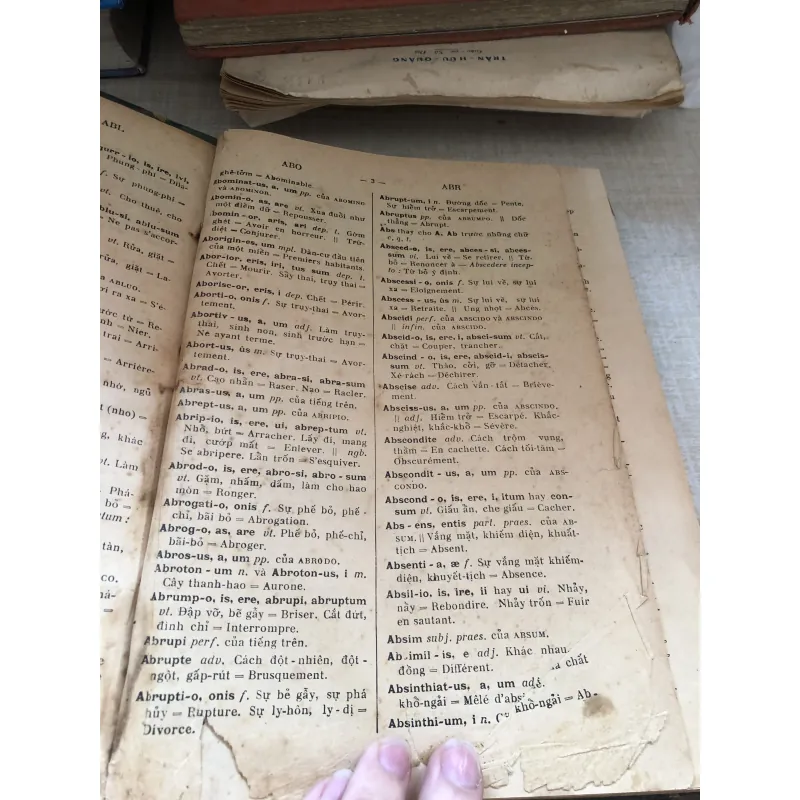 TRẦN-HỮU-QUẢNG
ABL
gurr-io, is, ire, ivi,
Phung-phí = Dila-
f. Sự phung-phí =
vt. Cho thuê, cho
= Ne pas s'accor-
vt. Rửa, giặt =
giặt = La-
ABLUO.
ra xa = S'é-
tước từ = Re-
= Nier.
trai = Arri-
= Arrière-
nhớ, ngũ
(nho) =
khác
vt. Làm
Phá-
bỏ =
tum :
tàn,
CO.
há-
ABO
— 2 —
ABR
ghê-tởm = Abominable
Abominat-us, a, um pp. của ABOMINO
và ABOMINOR.
Abomin-o, as, are vt. Xua đuổi như
một điềm dở = Repousser.
Abomin-or, aris, ari dep. t. Gờm
ghét = Avoir en horreur. || Trừ-
diệt = Conjurer.
Aborigin-es, um mpl. Dân-cư đầu tiên
của một miền = Premiers habitants.
Abor-ior, eris, iri, tus sum dep. i.
Chết = Mourir. Sẩy thai, trụy thai =
Avorter.
Aborisc-or, eris, i dep. Chết = Périr.
Aborti-o, onis f. Sự truỵ-thai = Avor-
tement.
Abortiv-us, a, um adj. Làm truỵ-
thai, sinh non, sinh trước hạn =
Né avant terme.
Abort-us, ûs m. Sự truỵ-thai = Avor-
tement.
Abrad-o, is, ere, abra-si, abra-sum
vt. Cạo nhẵn = Raser. Nạo = Racler.
Abras-us, a, um pp. của tiếng trên.
Abrept-us, a, um pp. của ABRIPIO.
Abrip-io, is, ere, ui, abrep-tum vt.
Nhổ, bứt = Arracher. Lấy đi, mang
đi, cướp mất = Enlever. || ngb.
Se abripere. Lẩn trốn = S'esquiver.
Abrod-o, is, ere, abro-si, abro-sum
vt. Gặm, nhấm, dấm, làm cho hao
mòn = Ronger.
Abrogati-o, onis f. Sự phế bỏ, phế-
chỉ, bãi bỏ = Abrogation.
Abrog-o, as, are vt. Phế bỏ, phế-chỉ,
bãi-bỏ = Abroger.
Abros-us, a, um pp. của ABRODO.
Abroton-um n. và Abroton-us, i m.
Cây thanh-hao = Aurone.
Abrump-o, is, ere, abrupi, abruptum
vt. Đập vỡ, bẻ gẫy = Briser. Cắt đứt,
đình chỉ = Interrompre.
Abrupi perf. của tiếng trên.
Abrupte adv. Cách đột-nhiên, đột-
ngột, gấp-rút = Brusquement.
Abrupti-o, onis f. Sự bẻ gẫy, sự phá
hủy = Rupture. Sự ly-hôn, ly-dị =
Divorce.
Abrupt-um, i n. Đường dốc = Pente.
Sự hiểm trở = Escarpement.
Abruptus pp. của ABRUMPO. || Dốc
thẳng = Abrupt.
Abs thay cho A, Ab trước những chữ
c, q, t.
Absced-o, is, ere, abces-si, abces-
sum vi. Lui về = Se retirer. || Từ-
bỏ = Renoncer à — Abscedere incep-
to : Từ bỏ ý định.
Abscessi-o, onis f. Sự lui về, sự lui
xa = Eloignement.
Abscess-us, ûs m. Sự lui về, sự lui
xa = Retraite. || Ung nhọt = Abcès.
Abscidi perf. của ABSCIDO và ABSCINDO
|| infin. của ABSCIDO.
Abscid-o, is, ere, i, absci-sum vt. Cắt,
chặt = Couper, trancher.
Abscind-o, is, ere, abscid-i, abscis-
sum vt. Tháo, cời, gỡ = Détacher.
Xé rách = Déchirer.
Abscise adv. Cách vắn-tắt = Brieve-
ment.
Absciss-us, a, um pp. của ABSCINDO.
|| adj. Hiểm trở = Escarpé. Khắc-
nghiệt, khắc-khổ = Sévère.
Abscondite adv. Cách trộm vụng,
thầm = En cachette. Cách tối-tăm =
Obscurément.
Abscondit-us, a, um pp. của ABS-
CONDO.
Abscond-o, is, ere, i, itum hay con-
sum vt. Giấu ẩn, che giấu = Cacher.
Abs-ens, entis part. praes. của AB-
SUM. || Vắng mặt, khiếm diện, khuất-
tịch = Absent.
Absenti-a, æ f. Sự vắng mặt khiếm-
diện, khuyết-tịch = Absence.
Absil-io, is, ire, ii hay ui vi. Nhảy,
nảy = Rebondire. Nhảy trốn = Fuir
en sautant.
Absim subj. praes. của ABSUM.
Absimil-is, e adj. Khác nhau,
đồng = Différent.
chất
Absinthiat-us, a, um adj.
khổ-ngải = Mêlé d'abs
Absinthi-um, i n. khổ-ngải = Ab-